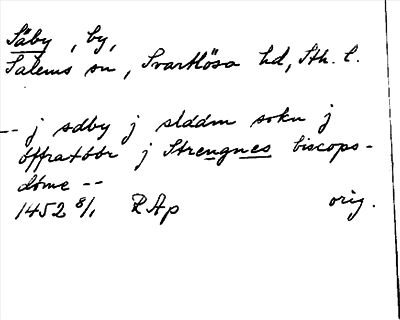 Säby, by,
Salems sn, Svartlösa hd, Sth. l.
-- j sdby j slddm sokn j
öffratöör j Strengnes biscops-
döme --
1452 8/1 RAp orig.